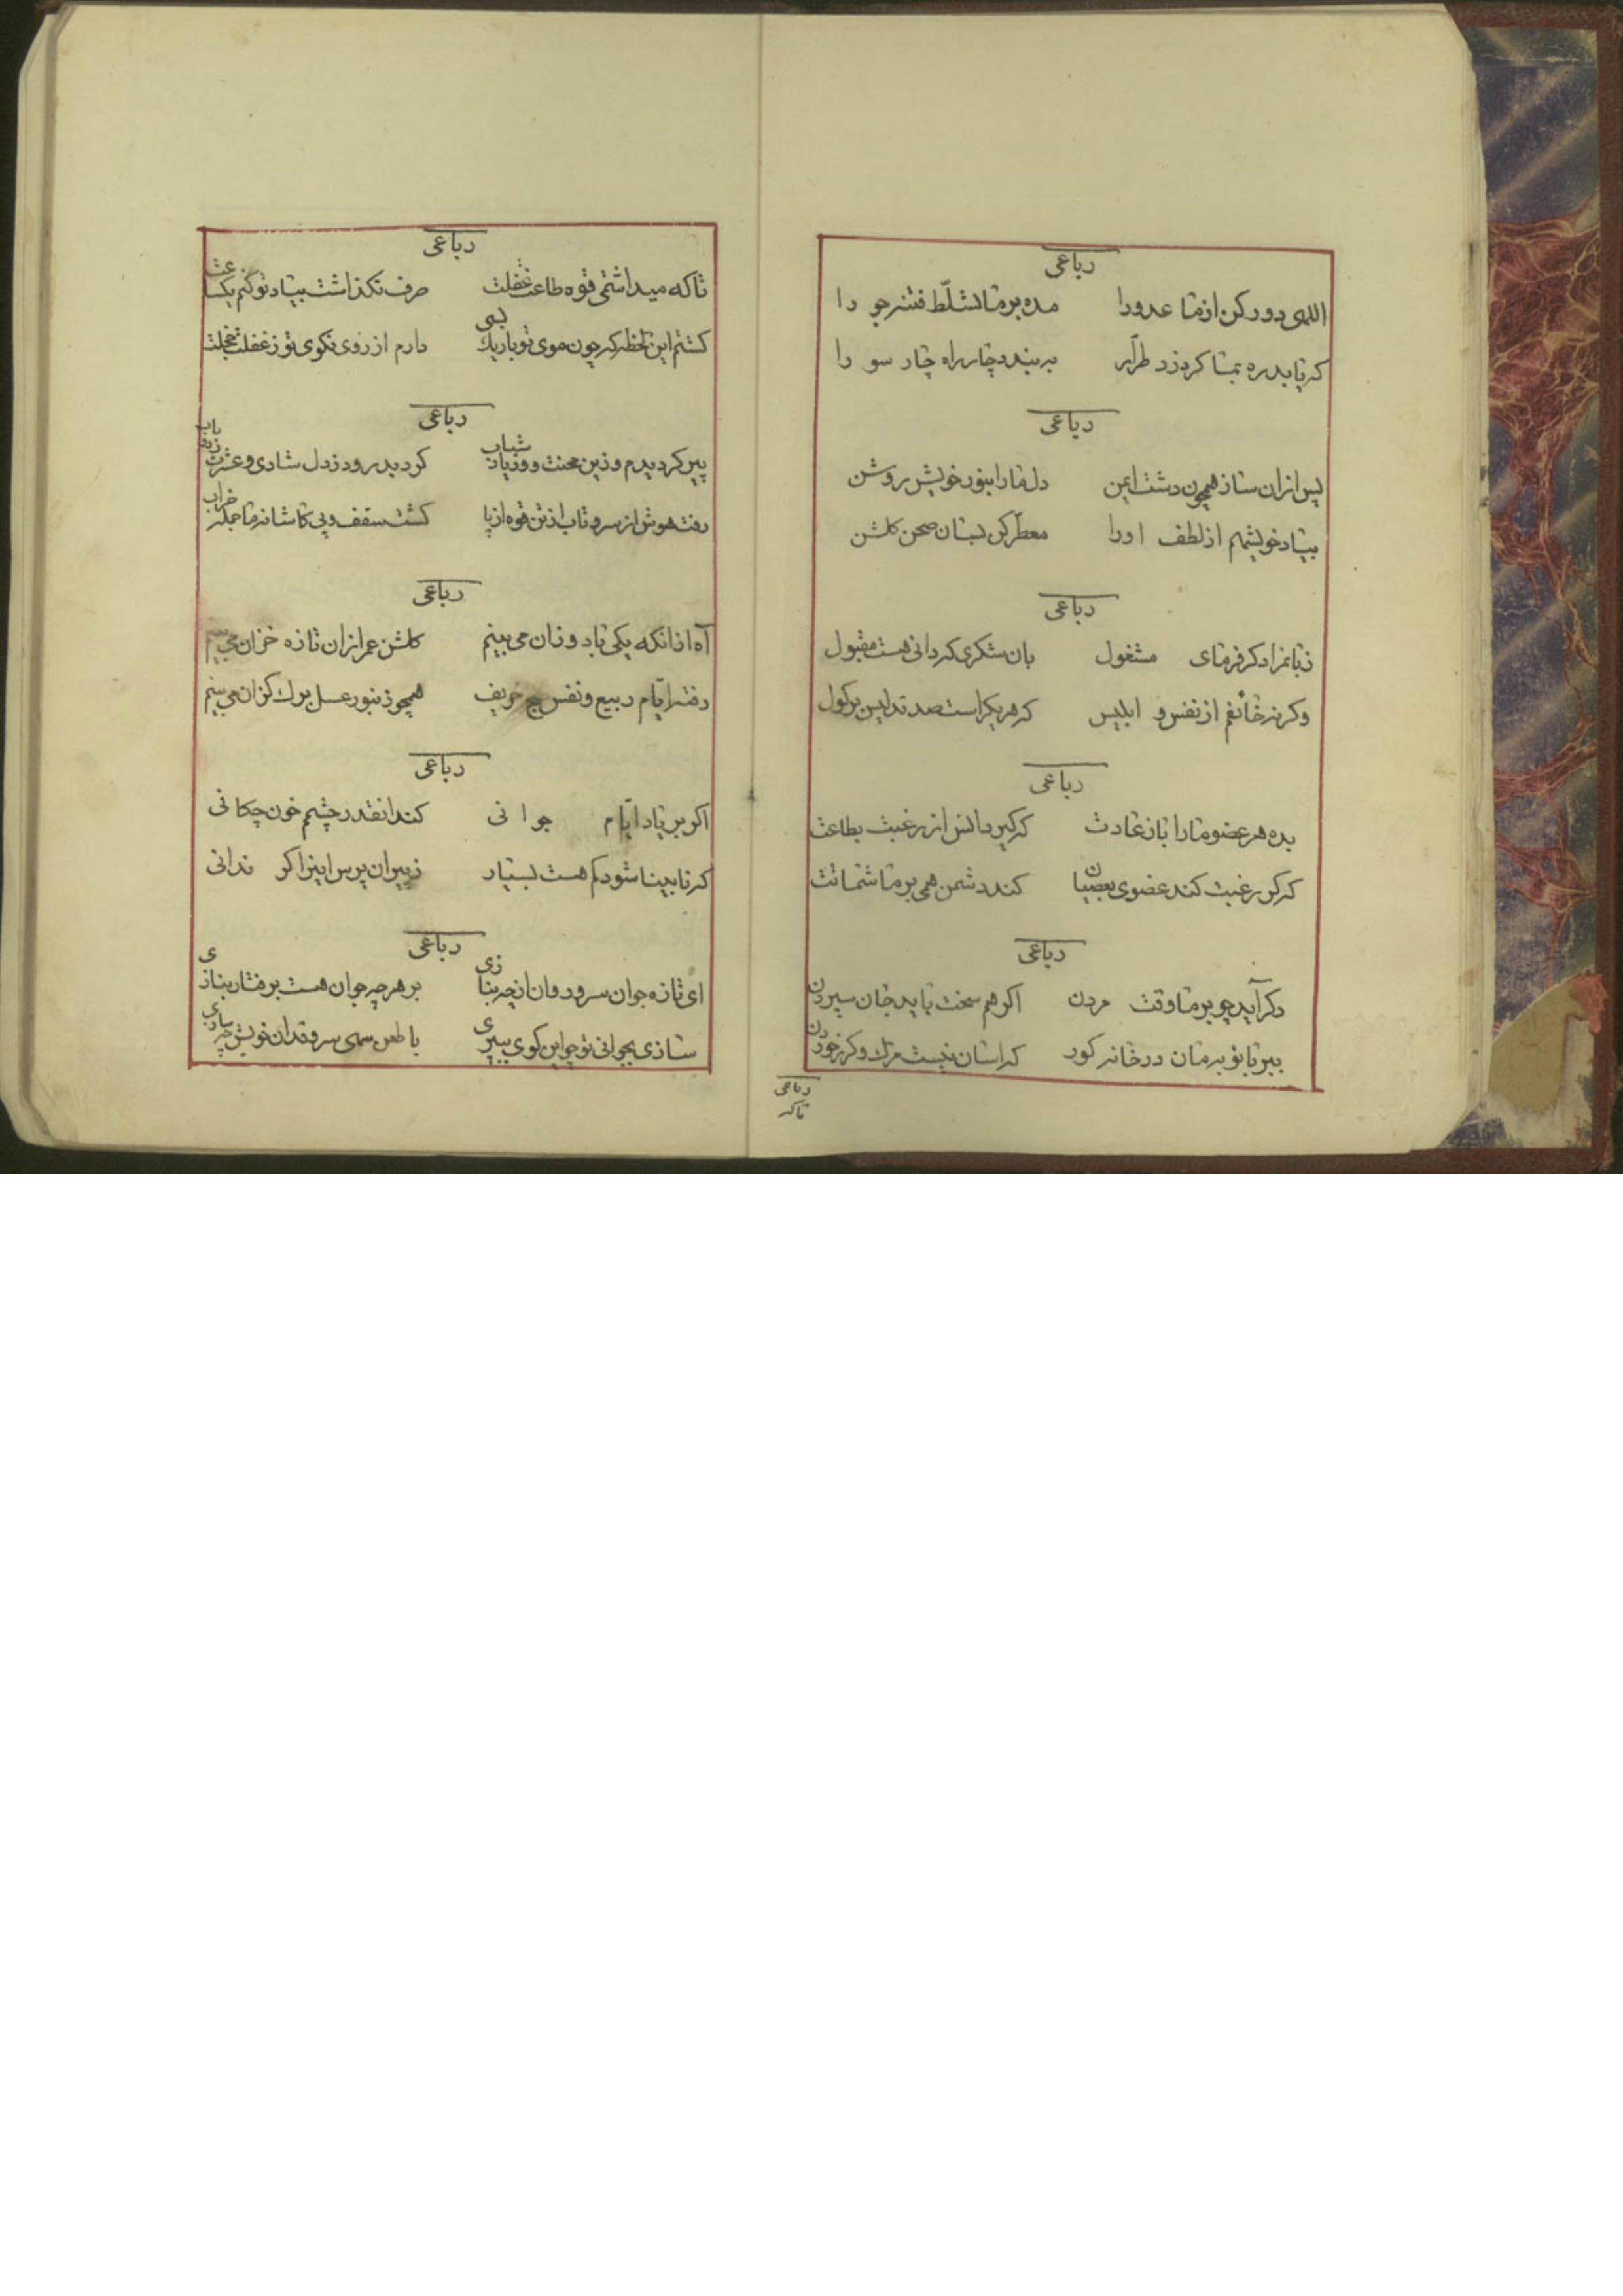 رباعی
اللهی دور کن از ما عدورا مده بر ما تسلّط فتنه جو را
که تا بد ره بما کردزد طرّار به بندد چار راه چار سو را
رباعی
پس از ان ساز همچون دشت ایمن دل ما را بنور خویش روشن
بیاد خویشم از لطف اورا معطّر کن بسان صحن کلشن
رباعی
زبانرا ذکر فرمای مشغول بان شکری که دانی هست مقبول
وکرنه خائفم از نفس و ابلیس که هر یک راست صد تدلیس بر کول
رباعی
بده هر عضو ما را باز عادت که کیرد انس از رغبت بطاعت
که کر رغبت کند عضوی بعصیان کند دشمن همی بر ما شماتت
رباعی
دکر آید چو بر ما وقت مردن اکر هم سخت باید جان سپردن
ببر تا نو بر مان در خانه کور که اسان نیست مرک وکرز خوردن
رباعی
تاکه
رباعی
تا که میداشتمی قوه طاعت غفلت حرف نکذاشت بیاد تو کنم یکساعت
کشتم این لحظه که چون موی تو باریک بسی دارم از روی نکوی تو ز غفلت خجلت
رباعی
پیر کردیدم و زین محنت و وزیاد شباب کردید رود ز دل شادی و عشرت
رفت هوش از سر و تاب از تن قوه از پا کشت سقف و پی کاشانه ما جمله خراب
رباعی
آه از انکه یکی باد وزان می بینم کلشن عمر ازان تازه خزان می بینم
رفته ایّام ربیع و نفس خریف همچو زنبور عسل برک کزان می بینم
رباعی
اکر بر یاد ایّام جوانی کند انقدر چشمم خون چکانی
که نابینا شود کم هست بسیار ز پیران پرس اینرا کر ندانی
رباعی
ای تازه جوان سرو روان از چه بنازی بر هر چه جوان هست بر فتار بنازی
سازی بجوانی تو چو این کوی بپیری با طعن سهی سرو قدان خویش چه سازی